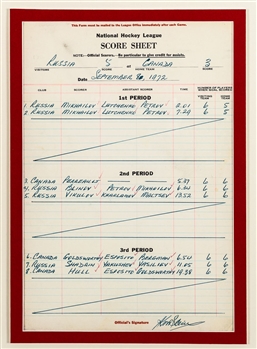 This Form must be mailed to the League Office immediately after each Game.
National Hockey League
SCORE SHEET
NOTE.—Official Scorers.—Be particular to give credit for assists.
RUSSIA 5 at CANADA 3
VISITORS SCORE HOME TEAM SCORE
Date SEPTEMBER 1972
1st PERIOD
CLUB SCORER ASSISTANT SCORER TIME
1. RUSSIA MIKHAILEV LUTCHENKO PETREV 2.01 6 5
2. RUSSIA MIKHAILEV LUTCHENKO PETREV 7.29 6 5
2nd PERIOD
3. CANADA PERREAULT 5.37 6 6
4. RUSSIA BLINEV PETREV MIKHAILEV 6.34 6 6
5. RUSSIA VIKULEV KHARLAMEV MALTSEV 13.52 6 6
3rd PERIOD
6. CANADA GOLDSWORTHY ESPOSITO BERGMAN 6.54 6 6
7. RUSSIA SHADRIN YAKUSHEV VASILIEV 11.05 6 6
8. CANADA HULL ESPOSITO GOLDSWORTHY 19.38 6 6
Official's Signature